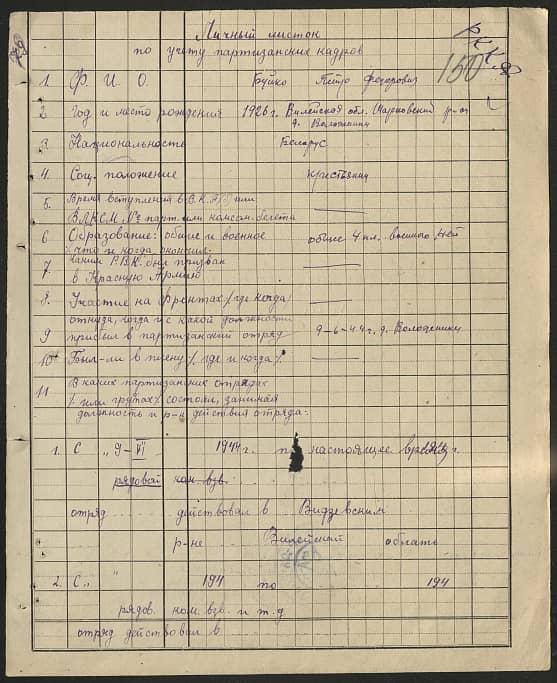 Личный листок
по учету партизанских кадров
Р К К А
150
1. Ф. И. О. Буйко Петро Федорович
2 Год и место рождения 1926 г. Вилейская обл. Мядельский р-он
д. Володьянику
3. Национальность Беларус
4. Соц. положение крестьянин
5. Время вступления в В.К.П/б/ или
ВЛКСМ № парт. или комсом. билета
6 Образование: общие и военное общее 4 кл. военного нет
/: что и когда окончил:
7. Каким Р.В.К. был призван
в Красную Армию
8. Участие на Фронтах /где когда/
откуда, когда и с какой должности
9 прибыл в партизанский отряд 9-6-44 г. д.
10 Был-ли в плену /. где и когда /.
11 В каких партизанских отрядах
/. или групах/. состоял, занимая
должность и р-н действия отряда.
1. С „ 9-VI 1944 г. по настоящее время г.
рядовой ком. взв.
отряд действовал в Видзевским
р-не Вилейской области
2. С „ " 194 по 194
рядов. ком. взв. и т.д
отряд действовал в